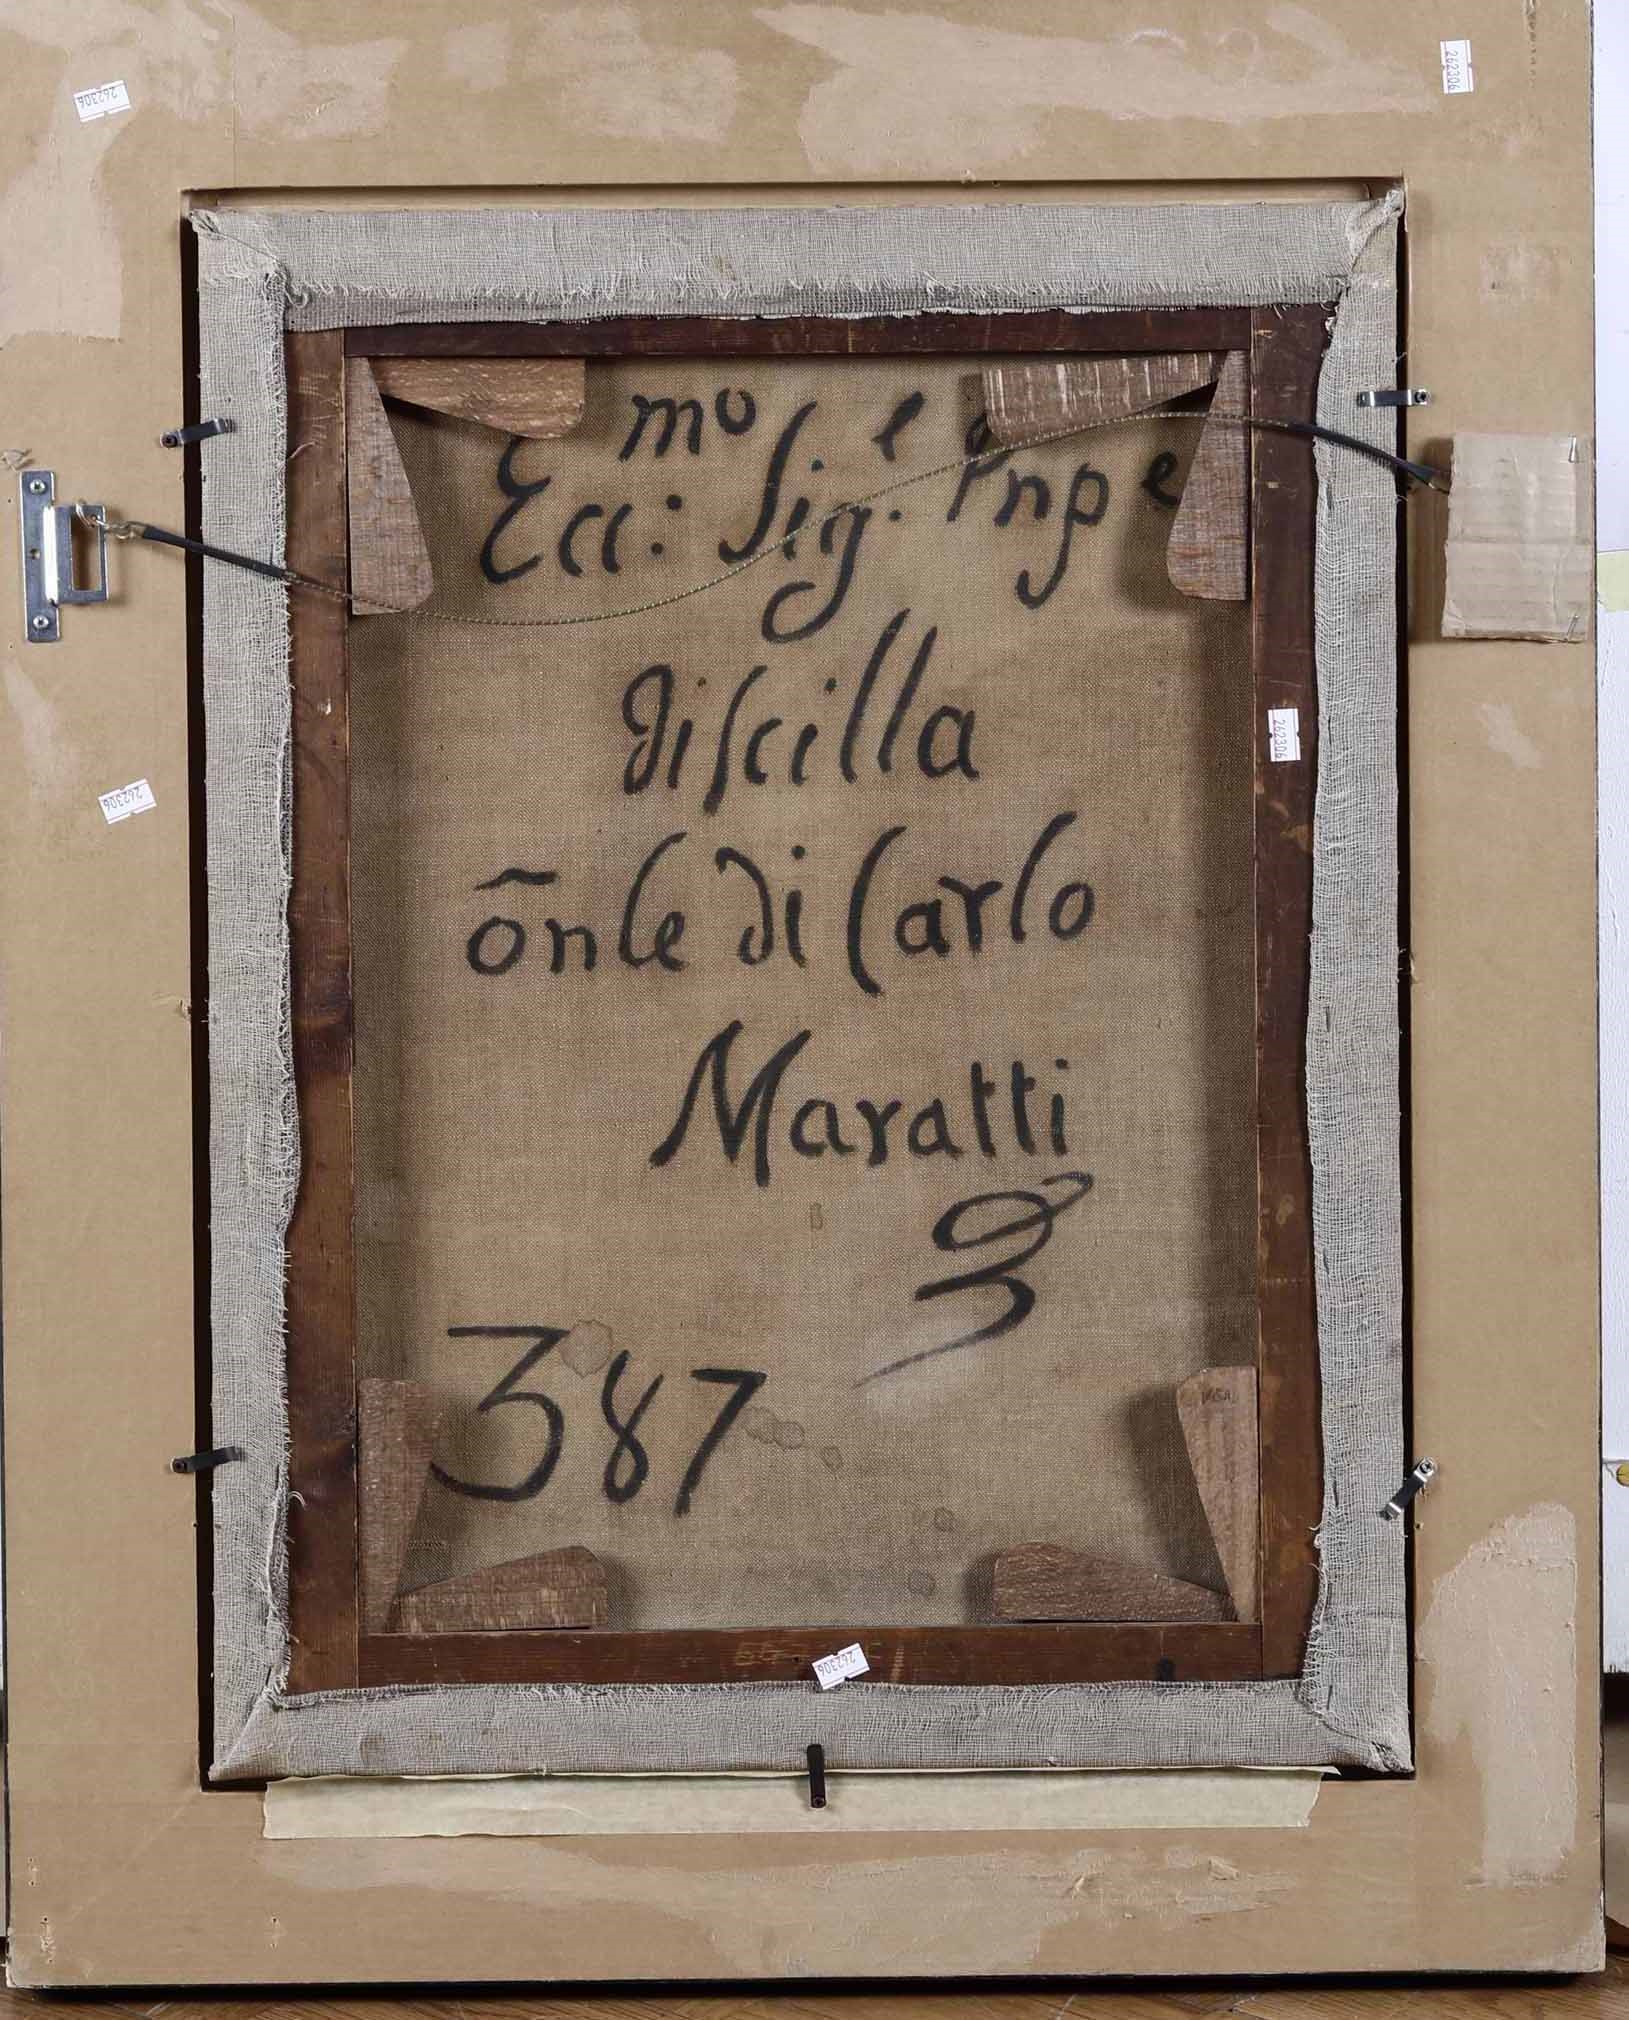 262306
262306
Ecc: mo Sig. e Pnp e
di Scilla
õnle di Carlo
Maratti
262306
262306
387
262306